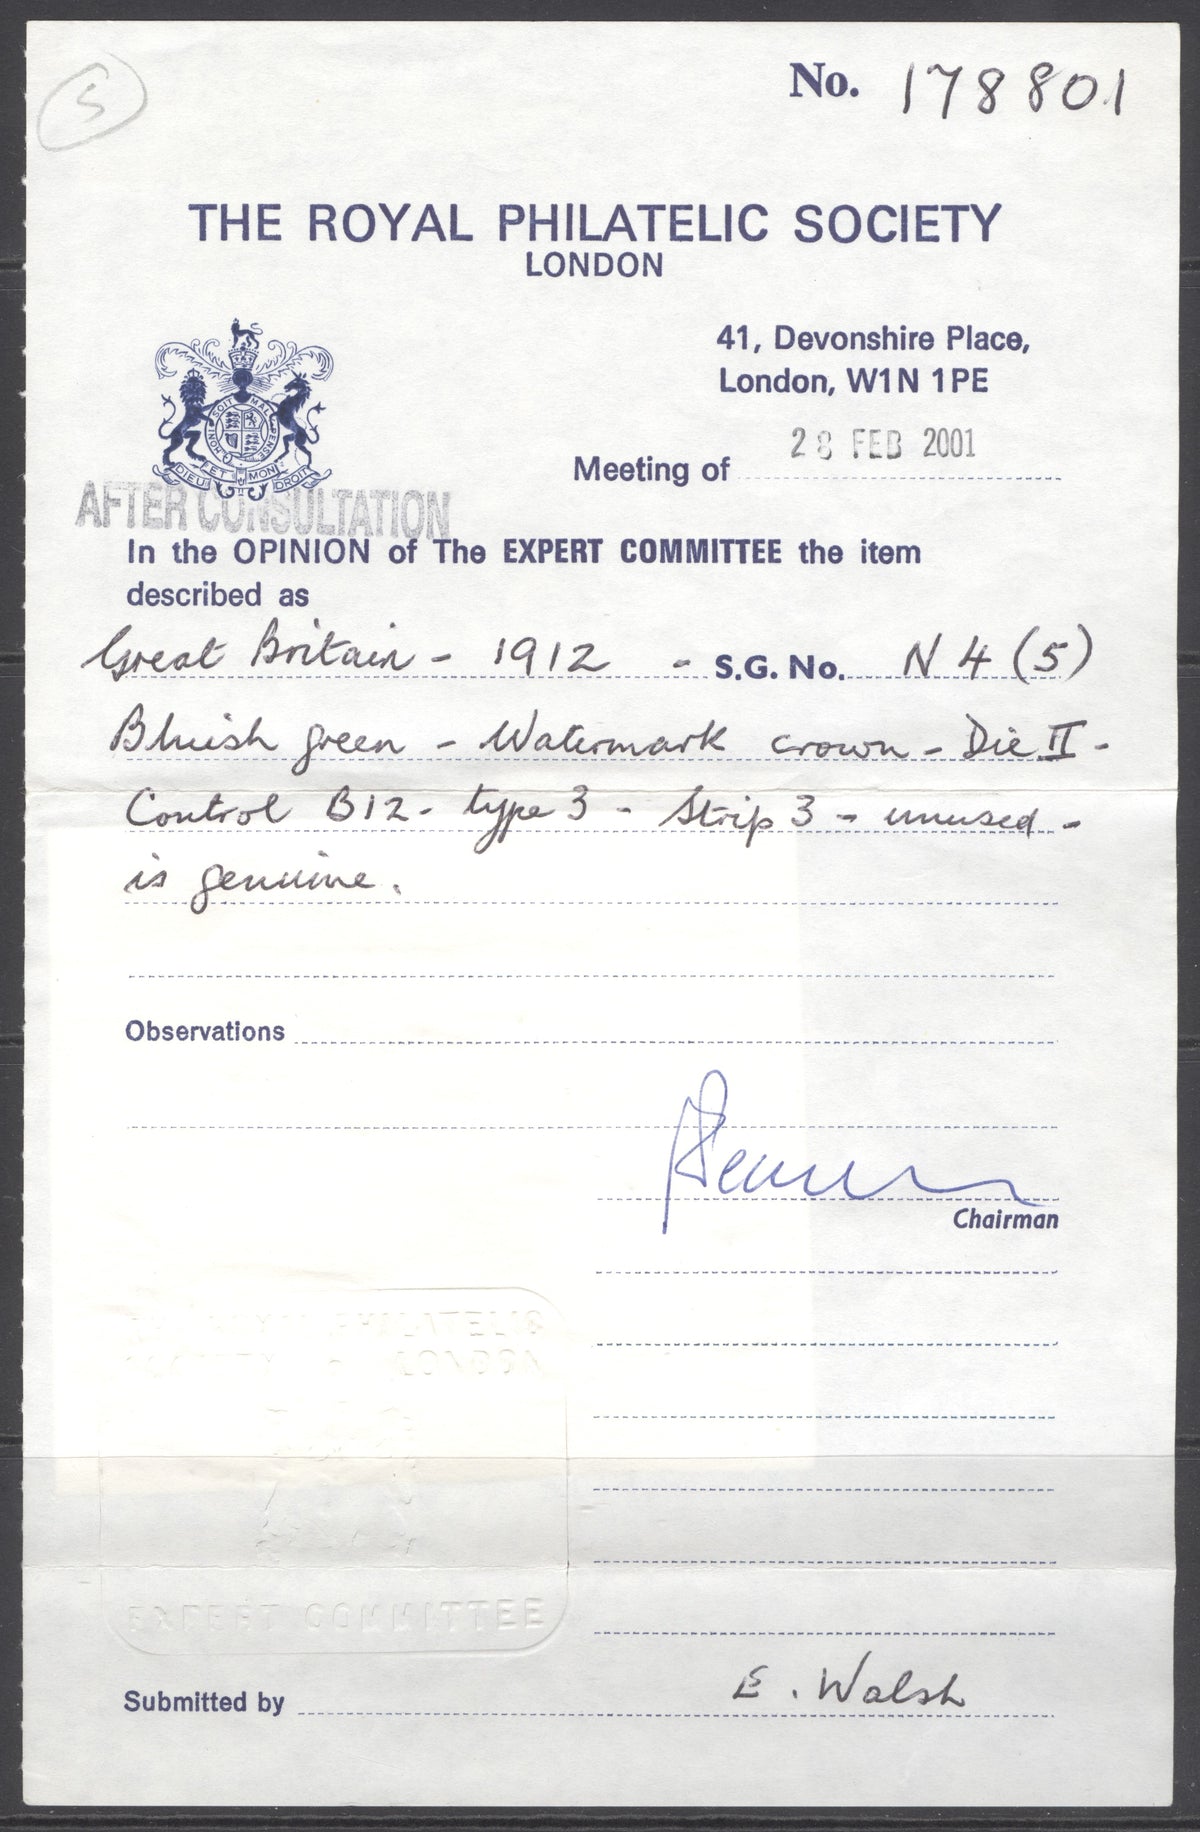 5
No. 178801
THE ROYAL PHILATELIC SOCIETY
LONDON
41, Devonshire Place,
London, W1N 1PE
Meeting of 28 FEB 2001
SOIT MAL PENSE HONI
DIEU ET MON DROIT
AFTER CONSULTATION
In the OPINION of The EXPERT COMMITTEE the item
described as
Great Britain - 1912 - S.G. No. N4(5)
Bluish green - Watermark crown - Die II -
Control B12 - type 3 - Strip 3 - unused -
is genuine.
Observations
Chairman
THE ROYAL PHILATELIC
SOCIETY LONDON
EXPERT COMMITTEE
Submitted by E. Walsh